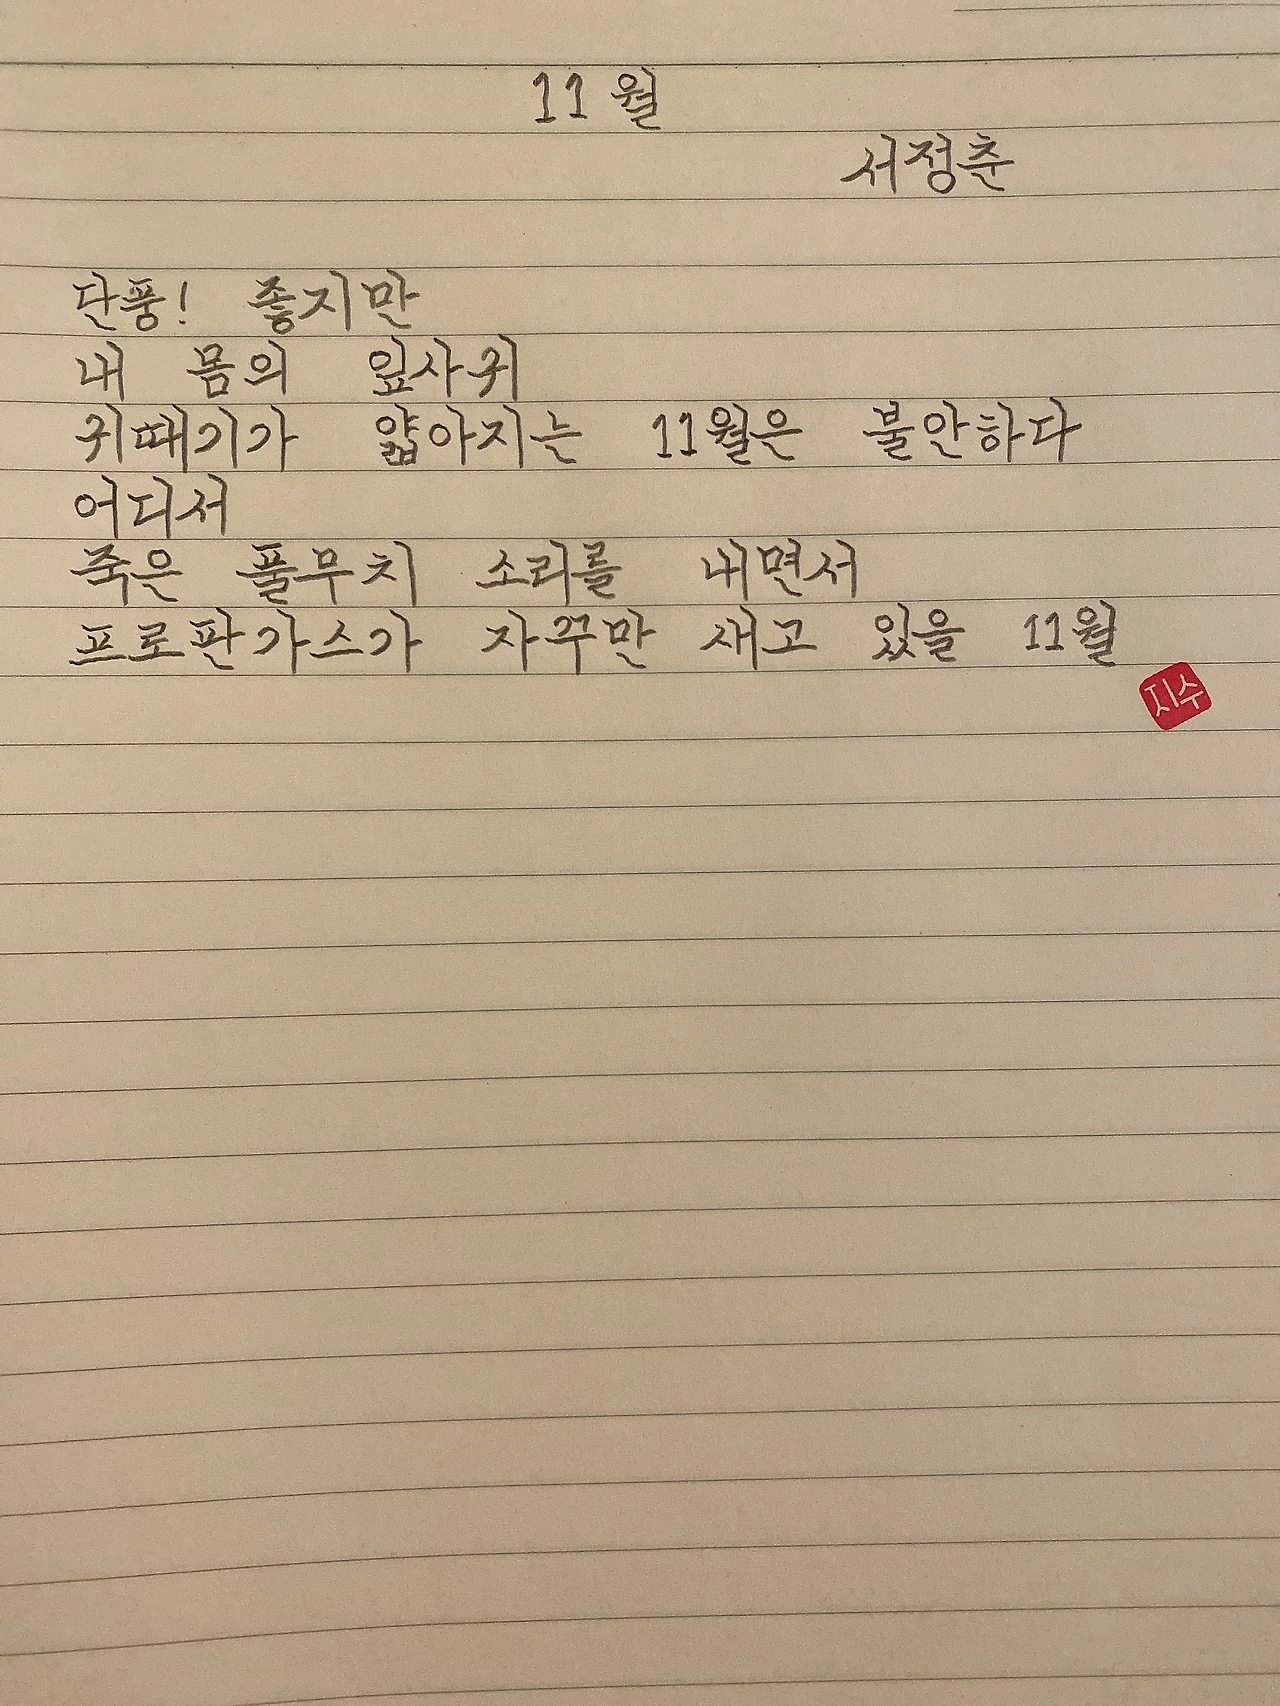 11월
서정춘
단풍! 좋지만
내 몸의 잎사귀
귀때기가 얇아지는 11월은 불안하다
어디서
죽은 풀무치 소리를 내면서
프로판가스가 자꾸만 새고 있을 11월
지수